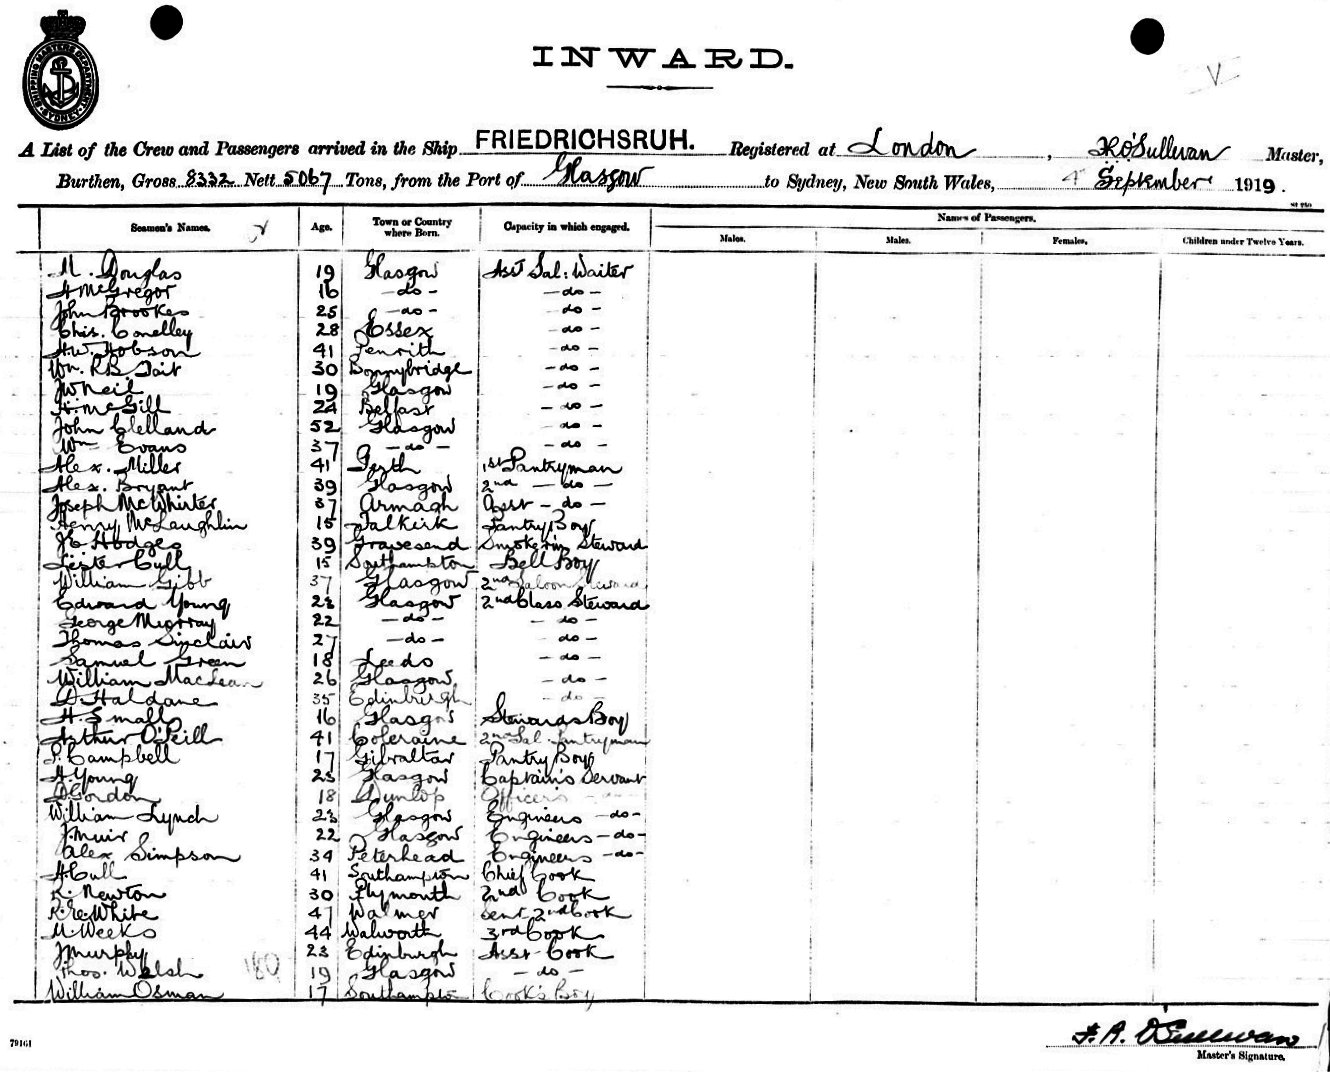 SHIPPING MASTERS DEPARTMENT SYDNEY
INWARD.
A List of the Crew and Passengers arrived in the Ship FRIEDRICHSRUH. Registered at London, O'Sullivan Master,
Burthen, Gross 8332 Nett 5067 Tons, from the Port of Glasgow to Sydney, New South Wales, 4 September 1919.
Names of Passengers.
Seamen's Names. Age. Town or Country where Born. Capacity in which engaged. Males. Males. Females. Children under Twelve Years.
M. Douglas 19 Glasgow Asst Sal: Waiter
A McGregor 16 -do- -do-
John Brookes 25 -do- -do-
Chis. Conelley 28 Essex -do-
H.W. Hobson 41 Penrith -do-
Wm. R.B. Tait 30 Bonnybridge -do-
J W Neil 19 Glasgow -do-
H. McGill 24 Belfast -do-
John Clelland 52 Glasgow -do-
Wm Evans 37 -do- -do-
Alex. Miller 41 Perth 1st Pantryman
Alex. Bryant 39 Glasgow 2nd -do-
Joseph McWhirter 37 Armagh Asst -do-
Henry McLaughlin 15 Falkirk Pantry Boy
J E Hodges 39 Gravesend Smoke rm Steward
Lester Cull 15 Southampton Bell Boy
William Gibb 37 Glasgow 2nd Saloon Steward
Edward Young 22 Glasgow 2nd Class Steward
George Murray 22 -do- -do-
Thomas Sinclair 27 -do- -do-
Samuel Green 18 Leeds -do-
William MacLean 26 Glasgow -do-
D Haldane 35 Edinburgh -do-
H. Small 16 Glasgow Stewards Boy
Arthur O'Neill 41 Coleraine 2nd Sal. Pantryman
P. Campbell 17 Gibraltar Pantry Boy
A. Young 23 Glasgow Captain's Servant
D Gordon 18 Dunlop Officer's -do-
William Lynch 23 Glasgow Engineers -do-
J. Muir 22 Glasgow Engineers -do-
Alex Simpson 34 Peterhead Engineers -do-
A Cull 41 Southampton Chief Cook
R. Newton 30 Plymouth 2nd Cook
R. E. White 47 Walmer 2nd Cook
M. Weeks 44 Walworth 3rd Cook
J Murphy 23 Edinburgh Asst Cook
Thos. Welsh 19 Glasgow -do-
William Osman 17 Southampton Cook's Boy
F. A. O'Sullivan
79161 Master's Signature.